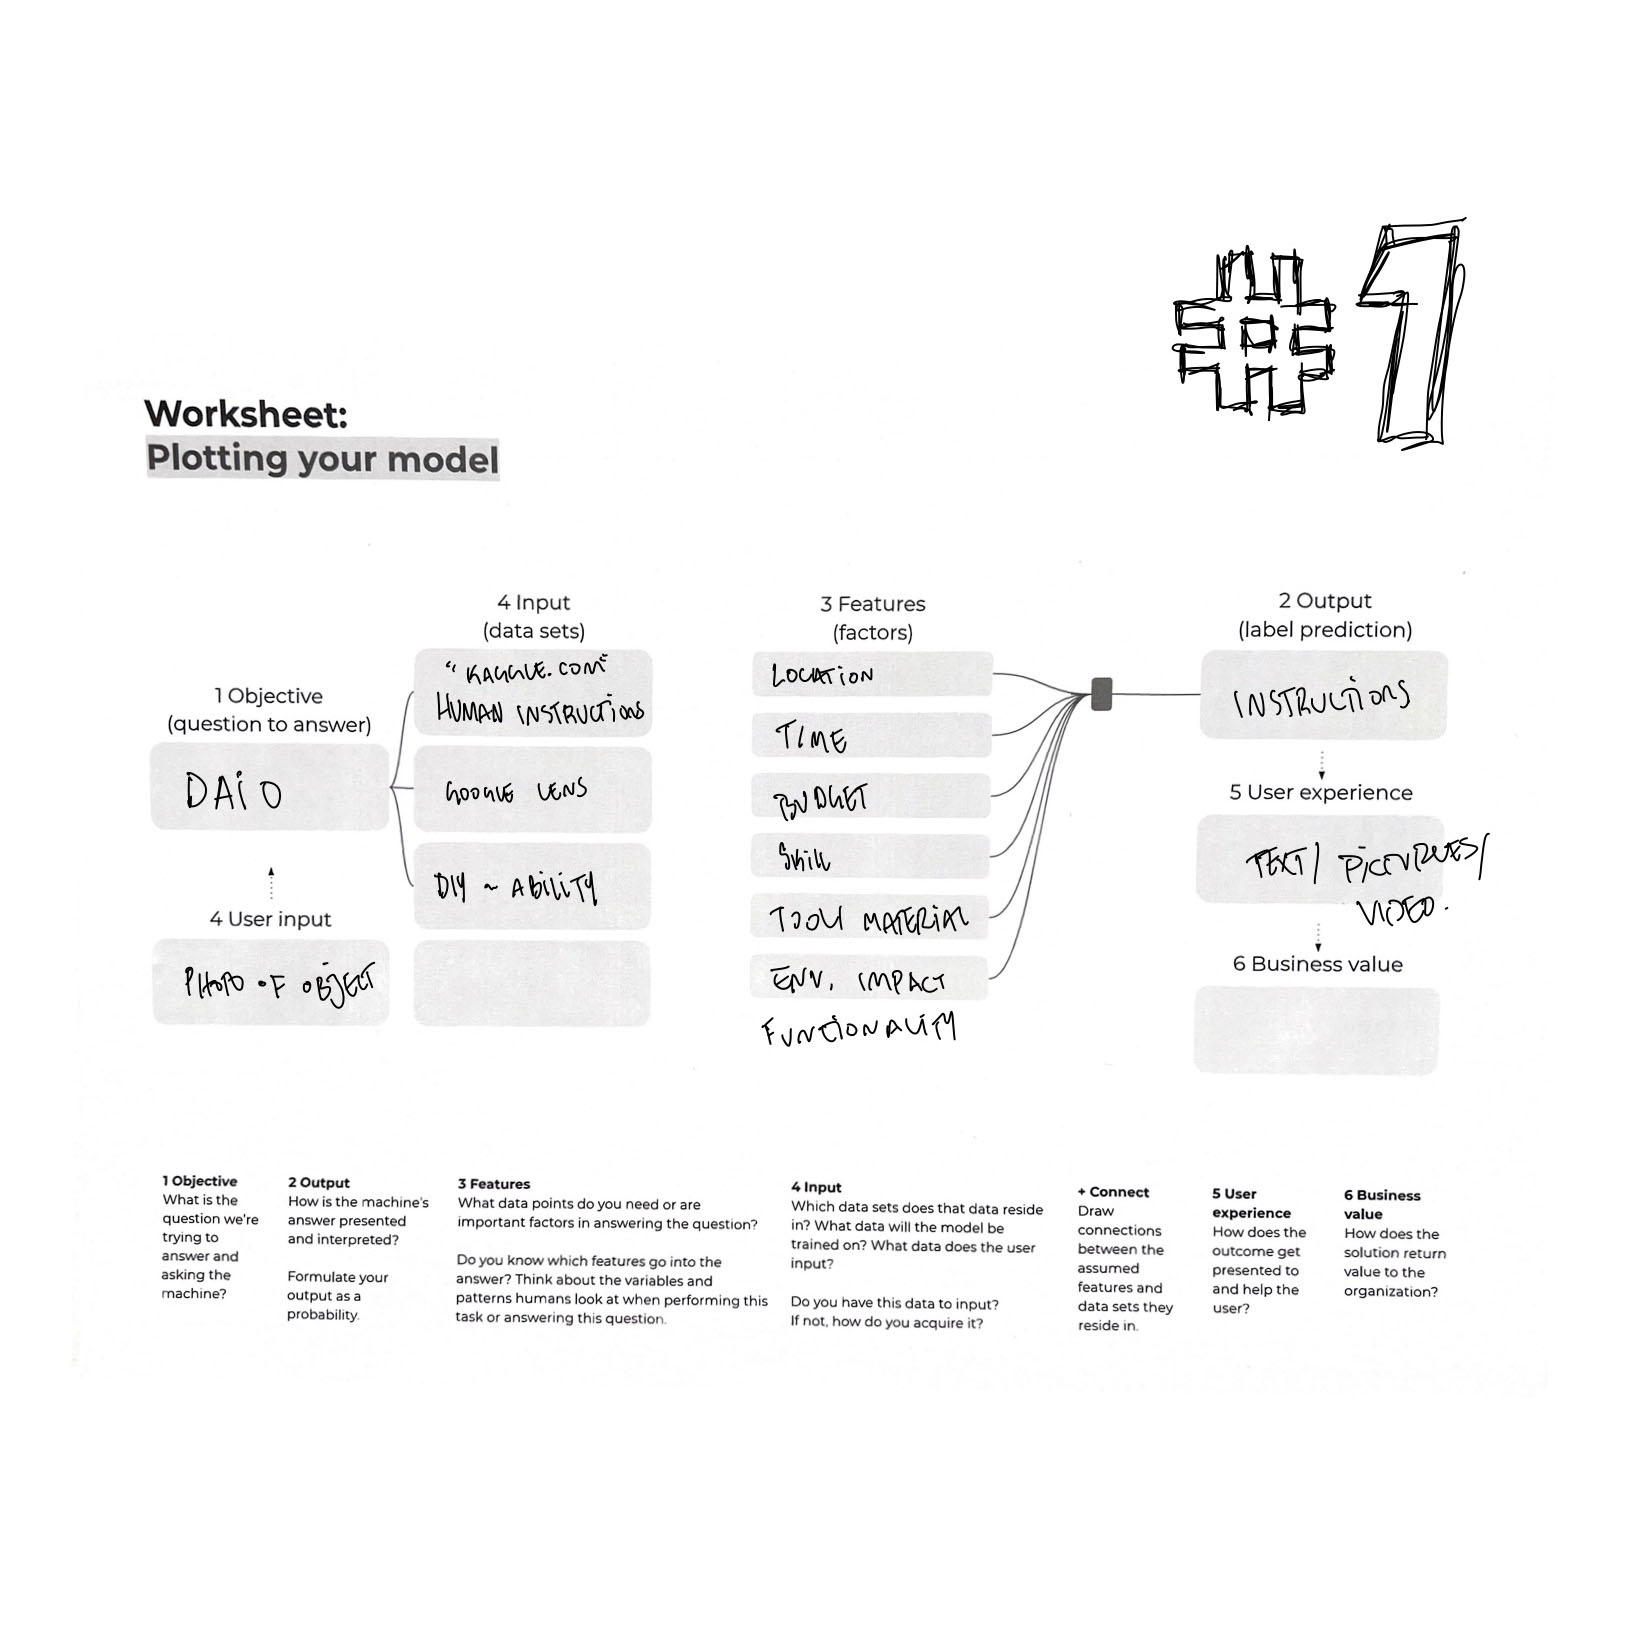 #1
Worksheet:
Plotting your model
1 Objective
(question to answer)
DAiO
4 User input
PHOTO OF OBJECT
4 Input
(data sets)
"KAGGLE.COM"
HUMAN INSTRUCTIONS
GOOGLE LENS
DIY ~ ABILITY
3 Features
(factors)
LOCATION
TIME
BUDGET
Skill
MATERIAL
ENV. IMPACT
FUNTIONALITY
2 Output
(label prediction)
INSTRUCTIONS
5 User experience
TEXT/
VIDEO.
6 Business value
1 Objective
What is the
question we're
trying to
answer and
asking the
machine?
2 Output
How is the machine's
answer presented
and interpreted?
Formulate your
output as a
probability.
3 Features
What data points do you need or are
important factors in answering the question?
Do you know which features go into the
answer? Think about the variables and
patterns humans look at when performing this
task or answering this question.
4 Input
Which data sets does that data reside
in? What data will the model be
trained on? What data does the user
input?
Do you have this data to input?
If not, how do you acquire it?
+ Connect
Draw
connections
between the
assumed
features and
data sets they
reside in.
5 User
experience
How does the
outcome get
presented to
and help the
user?
6 Business
value
How does the
solution return
value to the
organization?